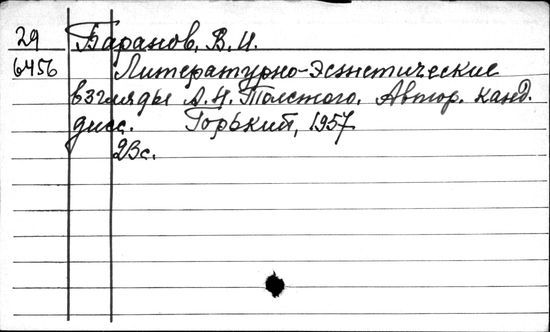 29 Баранов, В.И.
6456 Литературно-эстетические
взгляды А.Н. Толстого. Автор. канд.
дисс. Горький, 1957
23с.